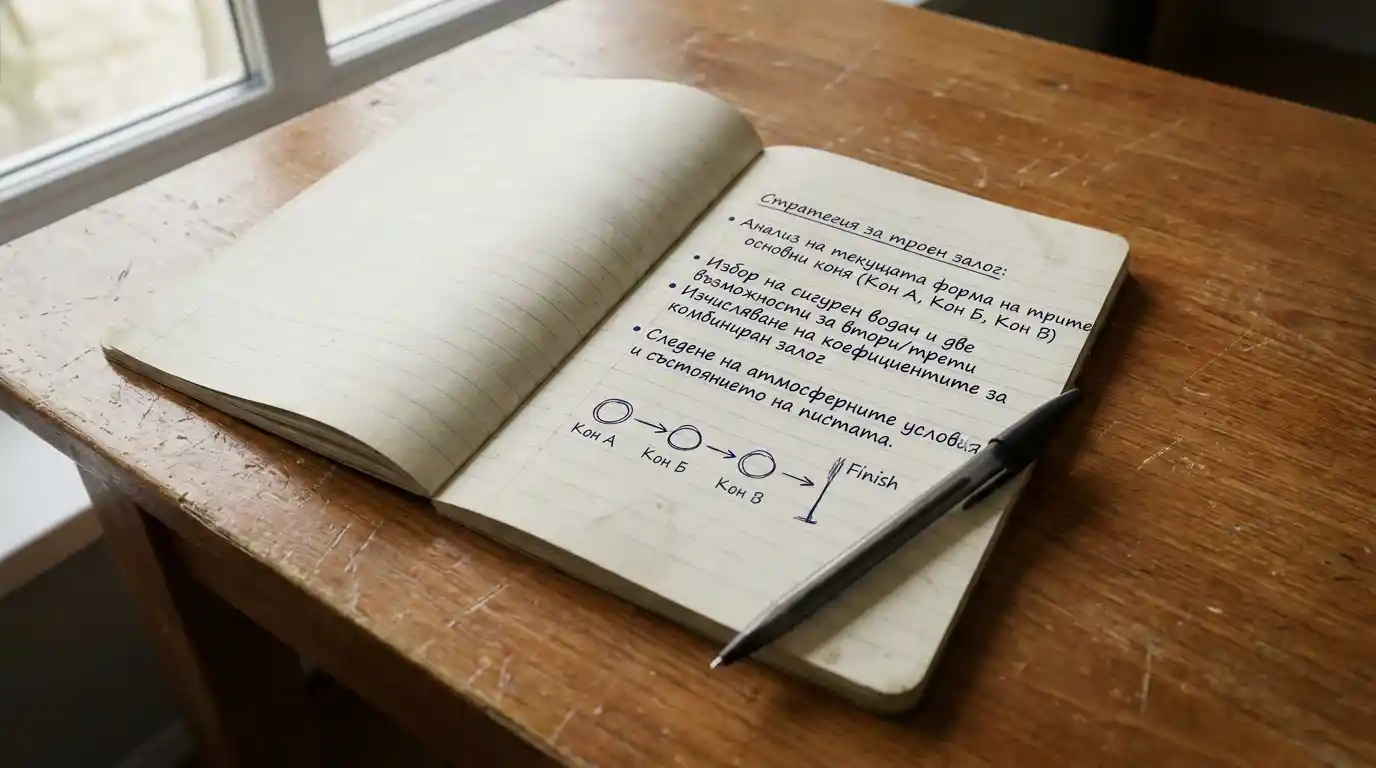 Стратегия за троен залог:
• Анализ на текущата форма на трите
основни коня (Кон А, Кон Б, Кон В)
• Избор на сигурен водач и две
възможности за втори/трети
• Изчисляване на коефициентите за
комбиниран залог
• Следене на атмосферните условия
и състоянието на пистата.
Кон А
Кон Б
Кон В
Finish